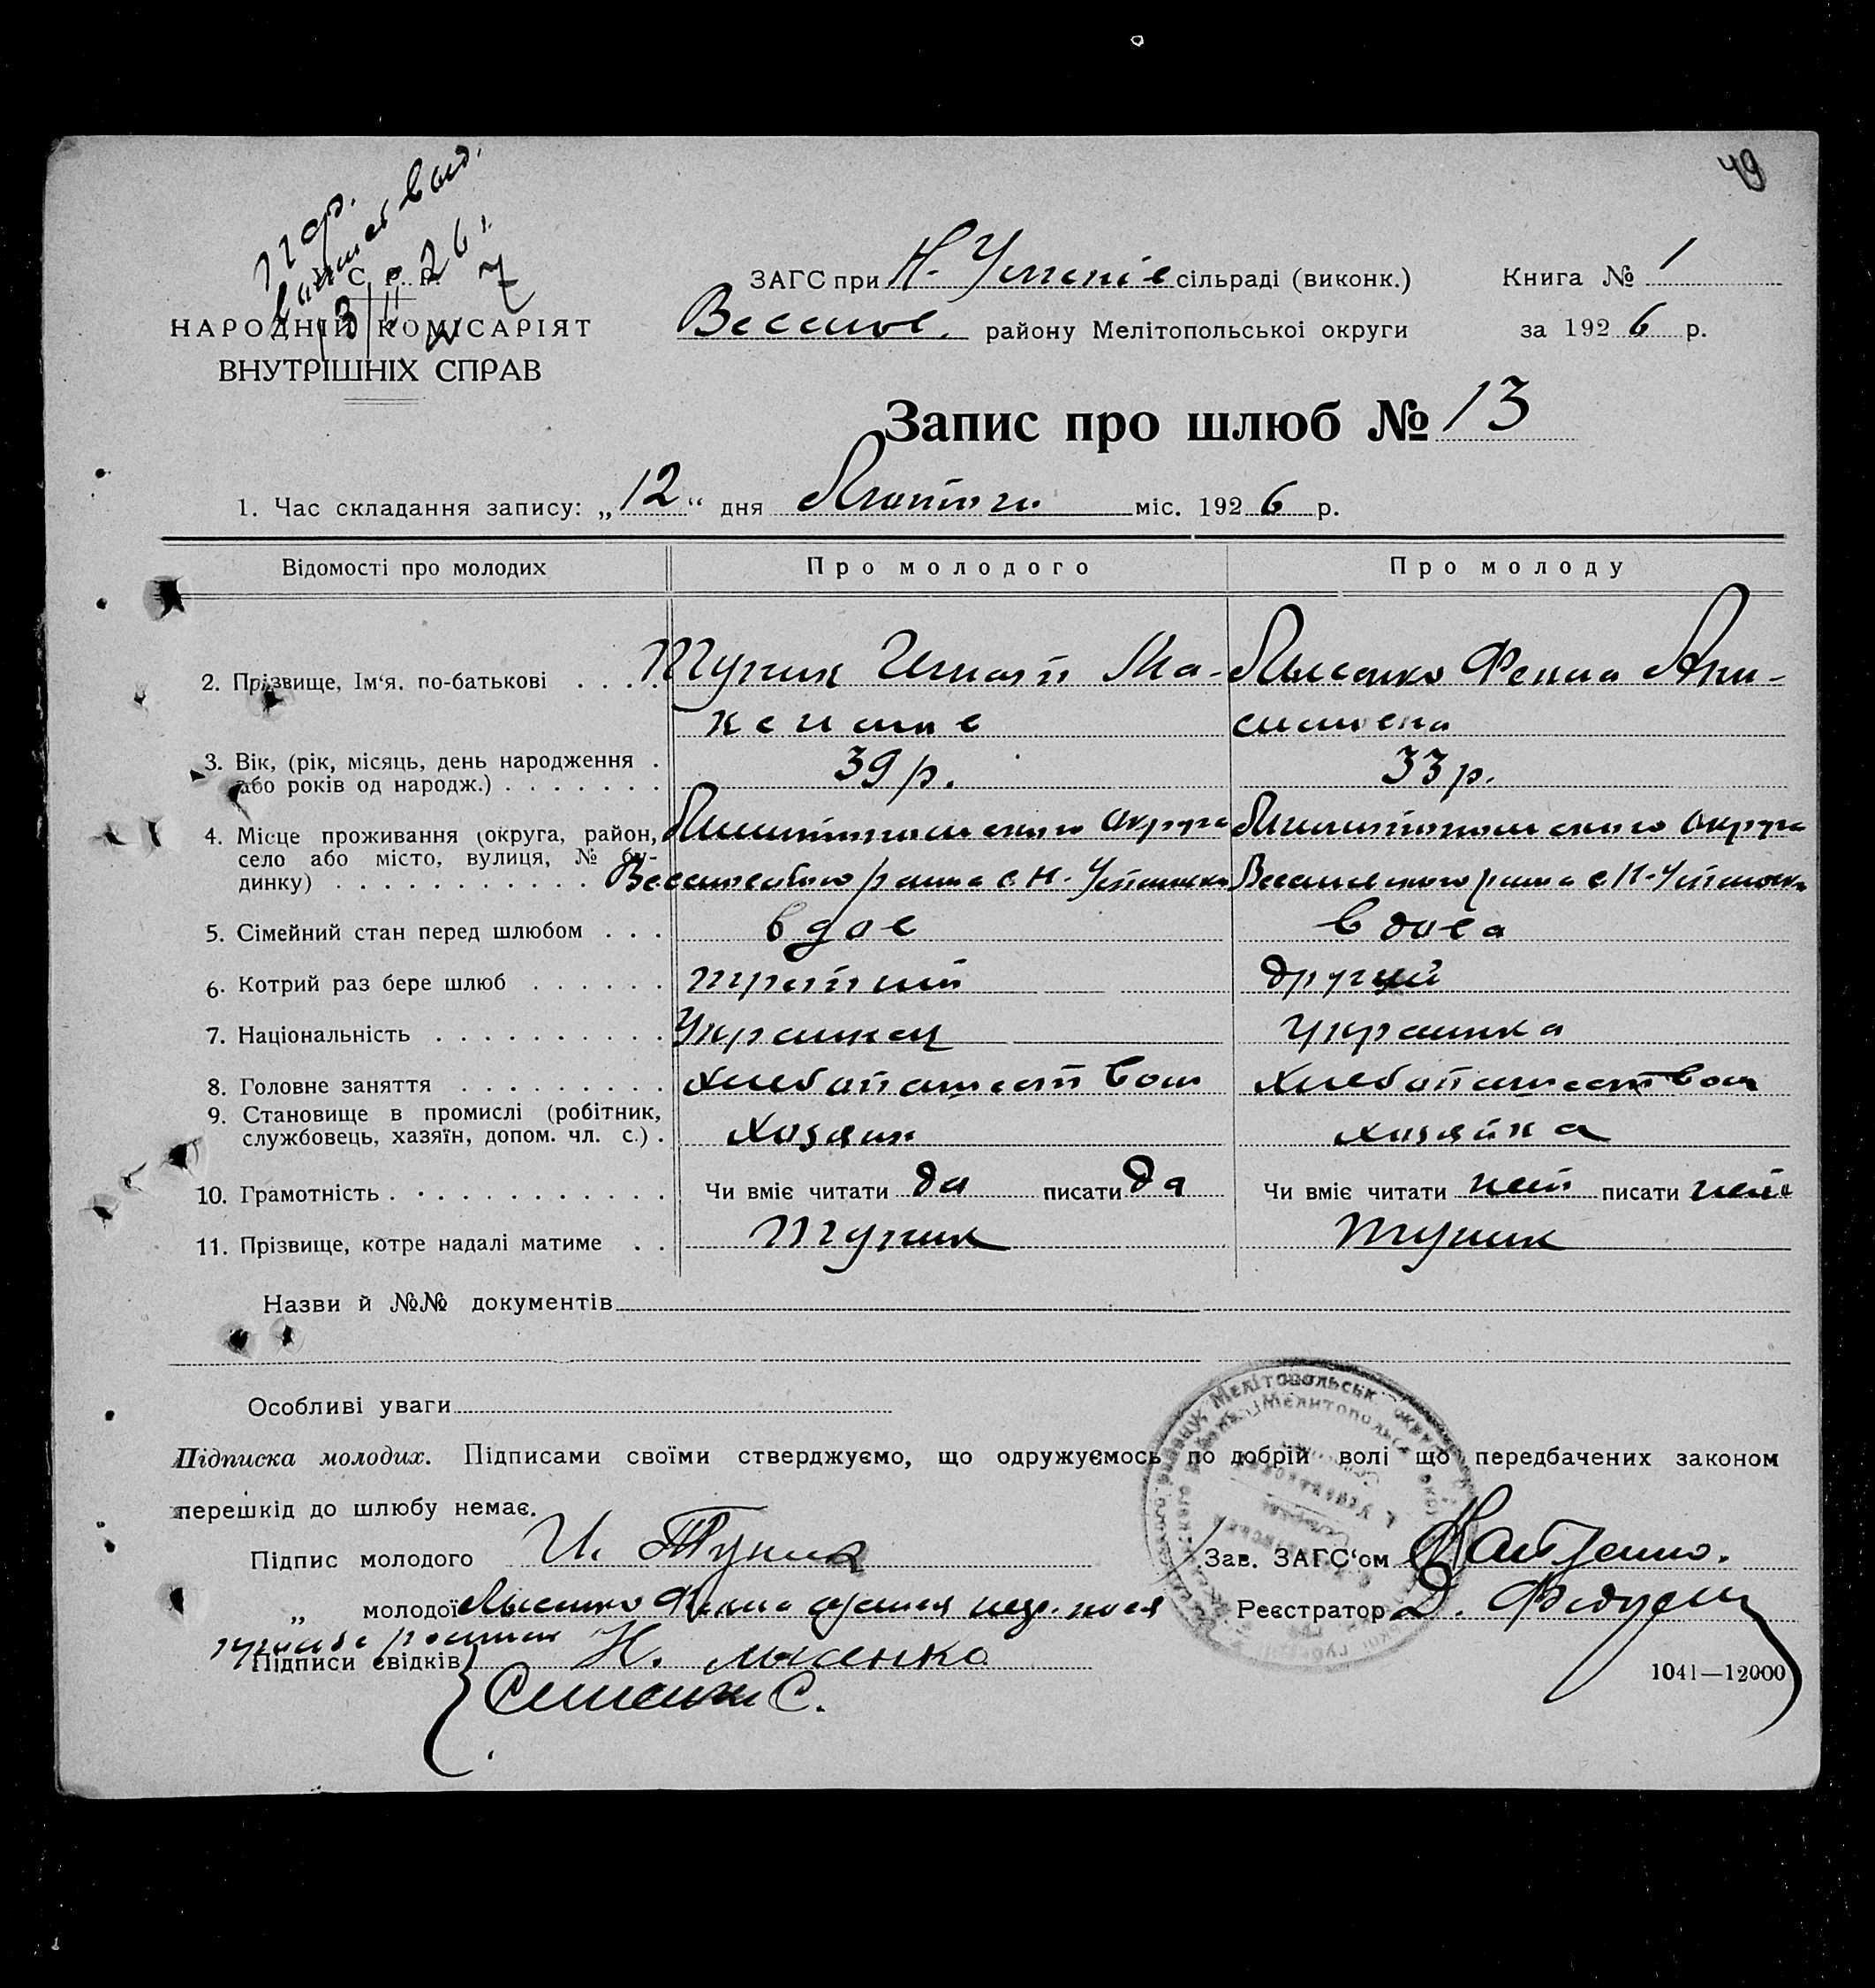 49
С. Р. Р.
НАРОДНІЙ КОМІСАРІЯТ
ВНУТРІШНІХ СПРАВ
ЗАГС при Н. Успенів сільраді (виконк.) Книга № 1
Веселов. району Мелітопольської округи за 1926 р.
Запис про шлюб № 13
1. Час складання запису: „12“ дня Лютого міс. 1926 р.
Відомості про молодих Про молодого Про молоду
2. Прізвище, Ім‘я. по-батькові . . . . Тупик Игнатй Ма- Лысенко Фекла Они-
симовна
3. Вік, (рік, місяць, день народження . 39 р. 33 р.
або років од народж.) . . . . . . .
4. Місце проживання (округа, район, Мелитопольского округа Мелитопольского округа
село або місто, вулиця, № бу-
динку) . . . . . . . . . . . Веселовского района с. Н-Успеновка Веселовского района с. Н-Успеновка
5. Сімейний стан перед шлюбом . . . вдов вдова
6. Котрий раз бере шлюб . . . . . . третий другий
7. Національність . . . . . . . . . . Украинец Украинка
8. Головне заняття . . . . . . . . . хлебопашеством хлебопашеством
9. Становище в промислі (робітник,
службовець, хазяїн, допом. чл. с.) . хозяин хозяйка
10. Грамотність . . . . . . . . . . . . Чи вміє читати да писати да Чи вміє читати нет писати нет
11. Прізвище, котре надалі матиме . . Тупик Тупик
Назви й №№ документів
Особливі уваги
Підписка молодих. Підписами своїми стверджуємо, що одружуємось по добрій волі що передбачених законом
перешкід до шлюбу немає.
Підпис молодого И. Тупик Зав. ЗАГС‘ом
„ молодої Лысенко Фекла Реєстратор Д.
Підписи свідків Н. Лысенко
С.
1041—12000